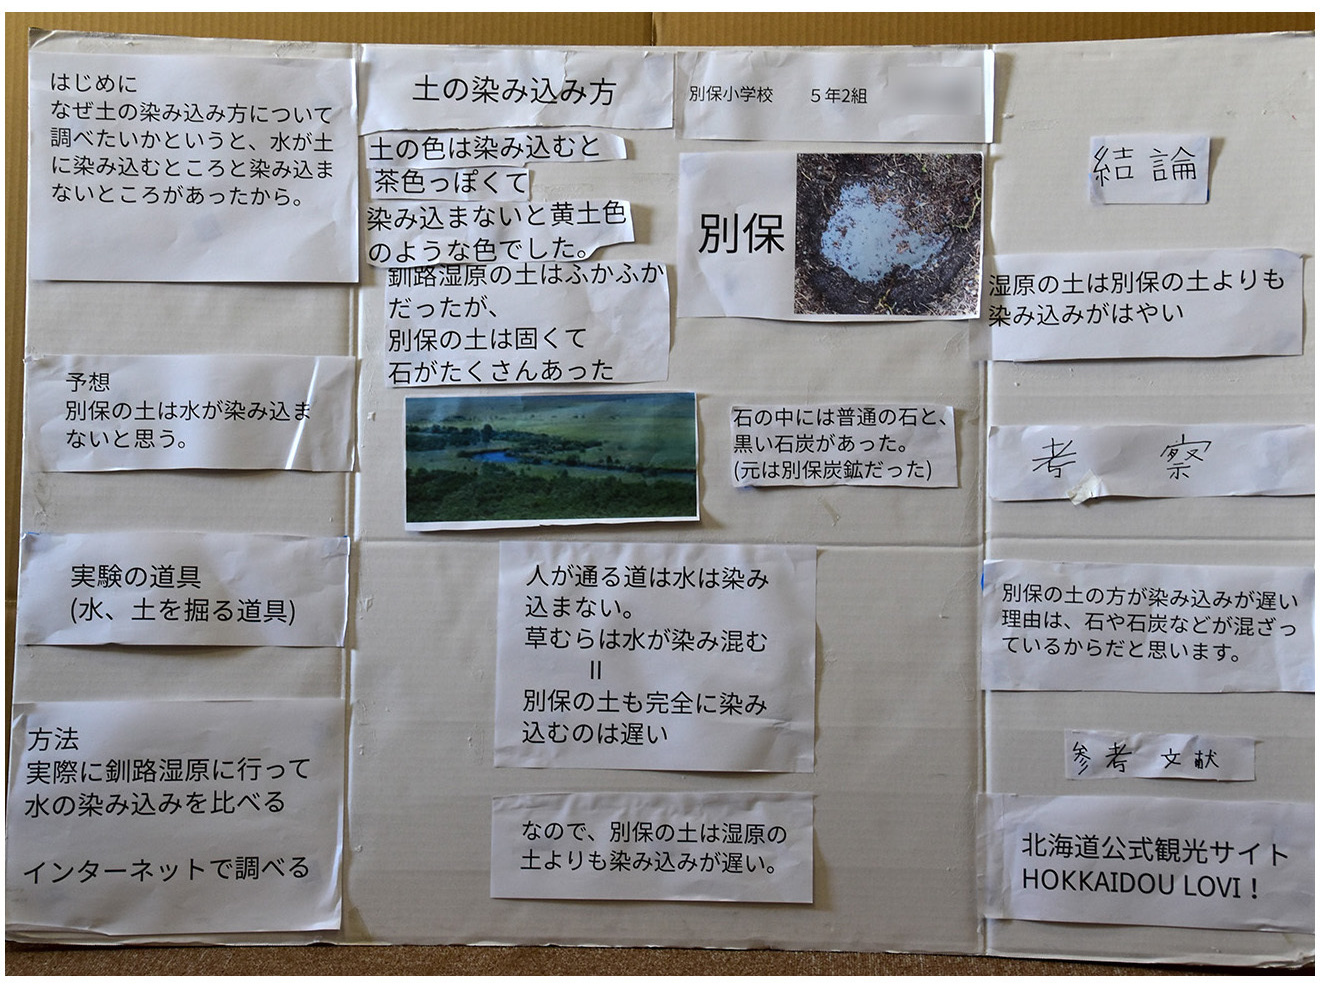 はじめに
なぜ土の染み込み方について
調べたいかというと、水が土
に染み込むところと染み込ま
ないところがあったから。
予想
別保の土は水が染み込ま
ないと思う。
実験の道具
(水、土を掘る道具)
方法
実際に釧路湿原に行って
水の染み込みを比べる
インターネットで調べる
土の染み込み方
別保小学校 5年2組
土の色は染み込むと
茶色っぽくて
染み込まないと黄土色
のような色でした。
釧路湿原の土はふかふか
だったが、
別保の土は固くて
石がたくさんあった
別保
石の中には普通の石と、
黒い石炭があった。
(元は別保炭鉱だった)
人が通る道は水は染み
込まない。
草むらは水が染み混む
＝
別保の土も完全に染み
込むのは遅い
なので、別保の土は湿原の
土よりも染み込みが遅い。
結論
湿原の土は別保の土よりも
染み込みがはやい
考察
別保の土の方が染み込みが遅い
理由は、石や石炭などが混ざっ
ているからだと思います。
参考文献
北海道公式観光サイト
HOKKAIDOU LOVI！